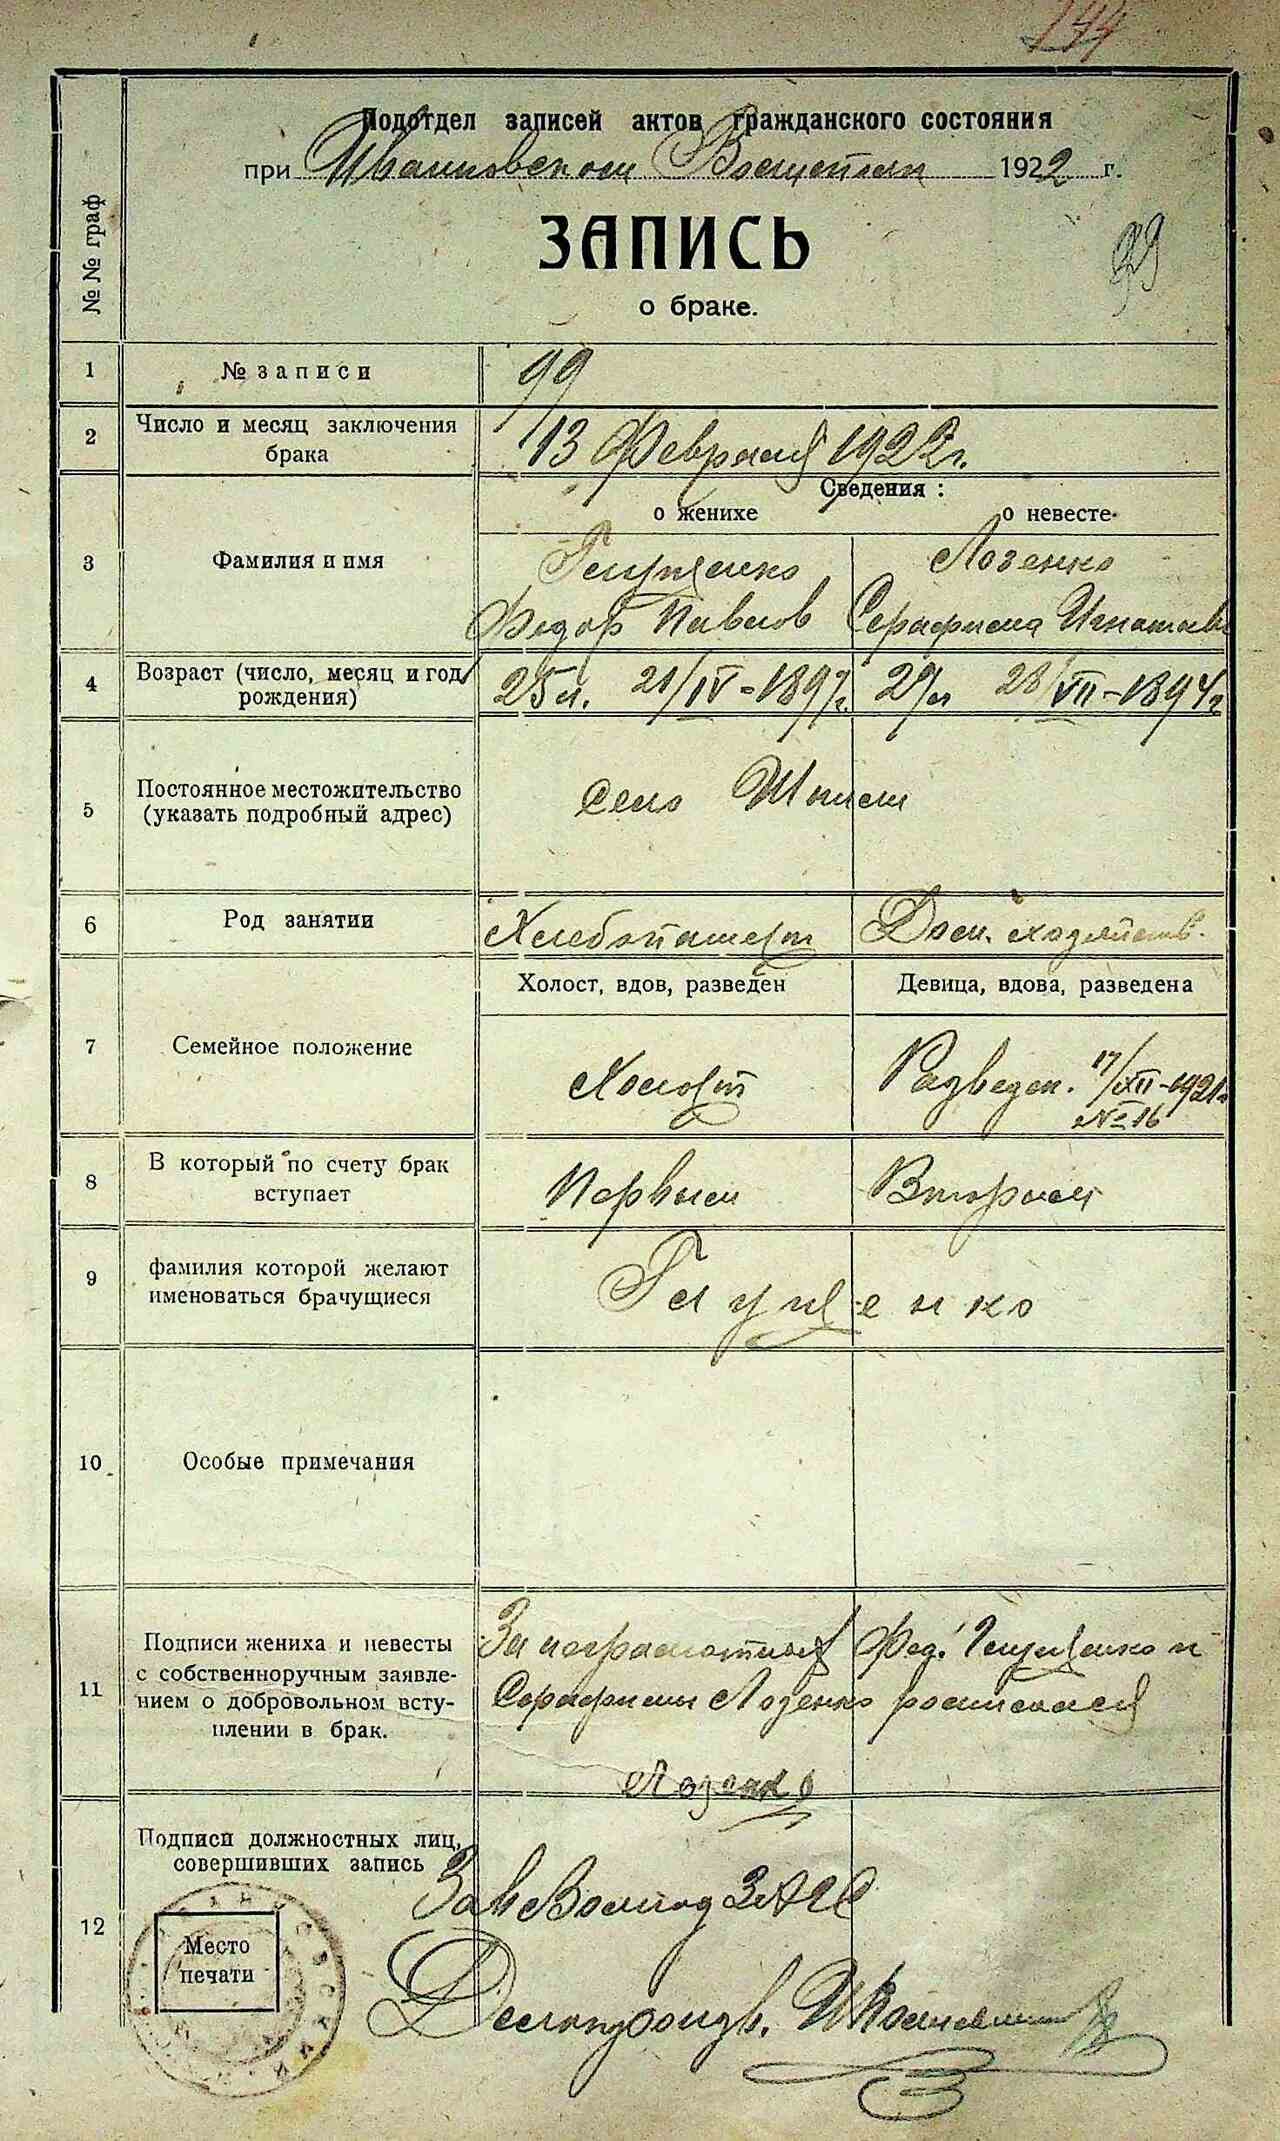 144
Подотдел записей актов гражданского состояния
при Ивановском 1922 г.
99
№№ граф
ЗАПИСЬ
о браке.
1 № записи 99
2 Число и месяц заключения брака 13 Февраля 1922 г.
Сведения:
о женихе о невесте
3 Фамилия и имя Глущенко Лозенко
Федор Павлов Серафима Игнатьев
4 Возраст (число, месяц и год рождения) 25 л. 21/IV-1897 г. 27 л 28/VII-1894 г
5 Постоянное местожительство
(указать подробный адрес) село
6 Род занятии Хлебопашест Дом. хозяйств.
Холост, вдов, разведен Девица, вдова, разведена
7 Семейное положение Холост Разведен. 17/XII-1921 г
№ 16
8 В который по счету брак
вступает Первым Вторым
9 фамилия которой желают
именоваться брачущиеся Глущенко
10 Особые примечания
11 Подписи жениха и невесты
с собственноручным заявле-
нием о добровольном всту-
плении в брак.
За неграмотных Фед. Глущенко и
Серафимы Лозенко росписался
Лозенко
12 Подписи должностных лиц,
совершивших запись
Место
печати
Зав Волпод ЗАГС
Делопроизв.